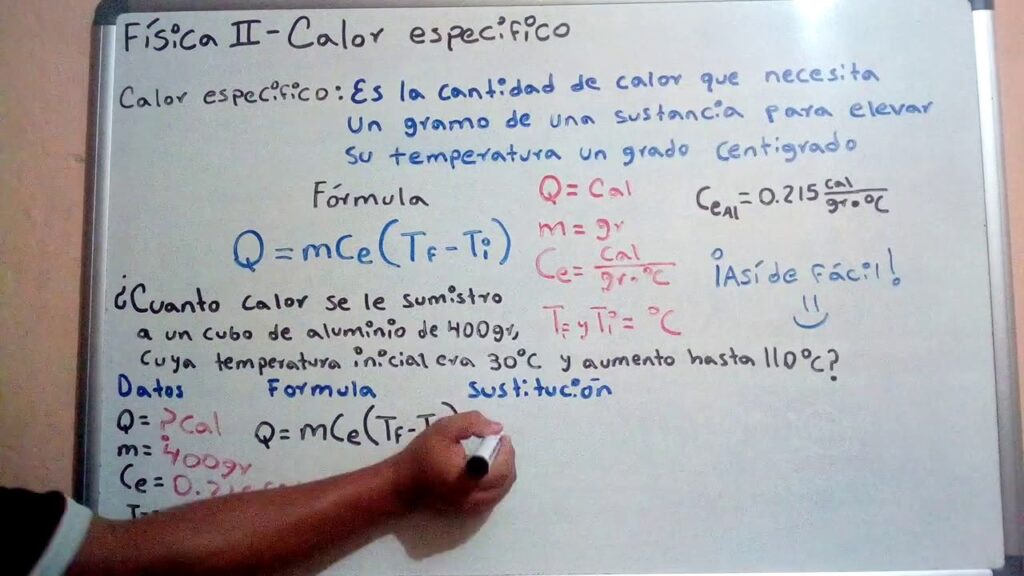 Física II - Calor específico
Calor específico: Es la cantidad de calor que necesita
un gramo de una sustancia para elevar
su temperatura un grado centigrado
Fórmula
Q = mCe(TF - Ti)
Q = Cal
m = gr
Ce = cal/gr·°C
TF y Ti = °C
CeAl = 0.215 cal/gr·°C
¡Así de Fácil!
¿Cuanto calor se le sumistro
a un cubo de aluminio de 400gr,
cuya temperatura inicial era 30°C y aumento hasta 110°C?
Datos Formula Sustitución
Q = ?Cal
m = 400gr
Ce = 0.215
Q = mCe(TF - T